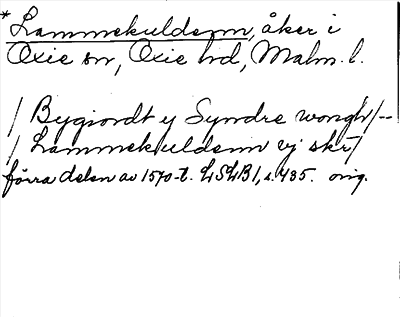 *Lammekuldenn, åker i
Oxie sn, Oxie hd, Malm. l.
/ Bygiordt y Syndre wongh/--
/ Lammekuldenn vj skr/
förra delen av 1570-t. LSLB1, s. 435. orig.